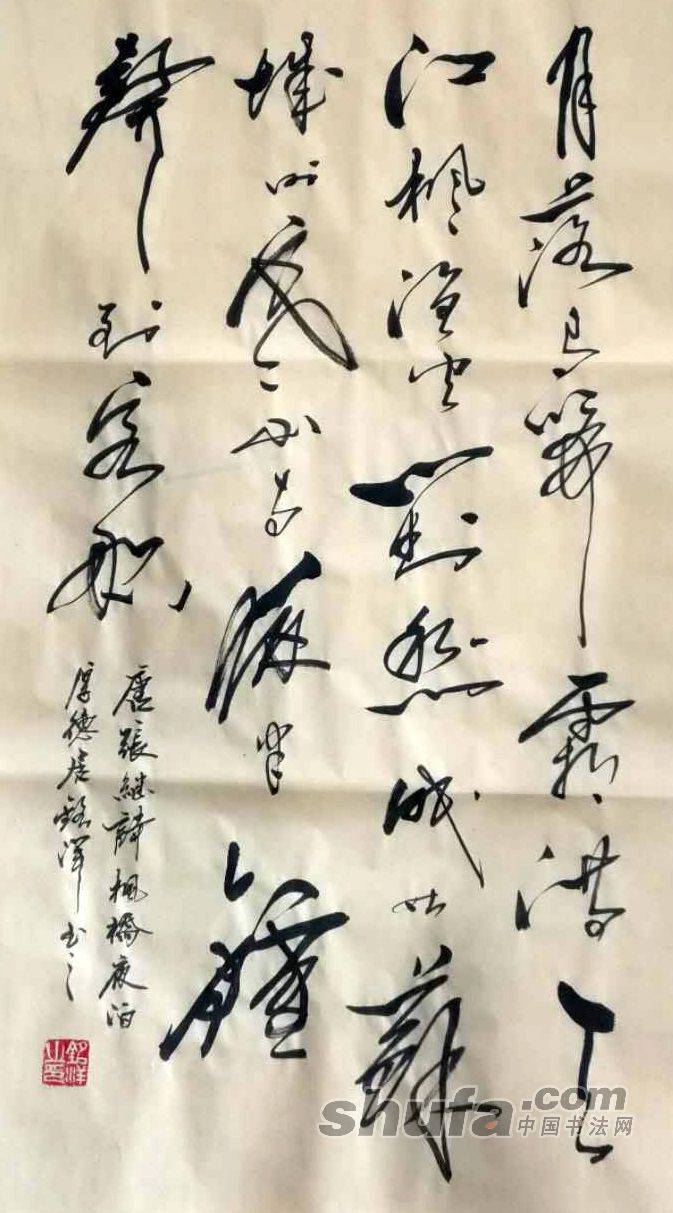 月落烏啼霜滿天
江枫渔火對愁眠姑蘇
城外寒山寺夜半鐘
聲到客船
唐張継詩枫橋夜泊
厚德居銘洋书之
銘洋之印
shufa.com
中国书法网